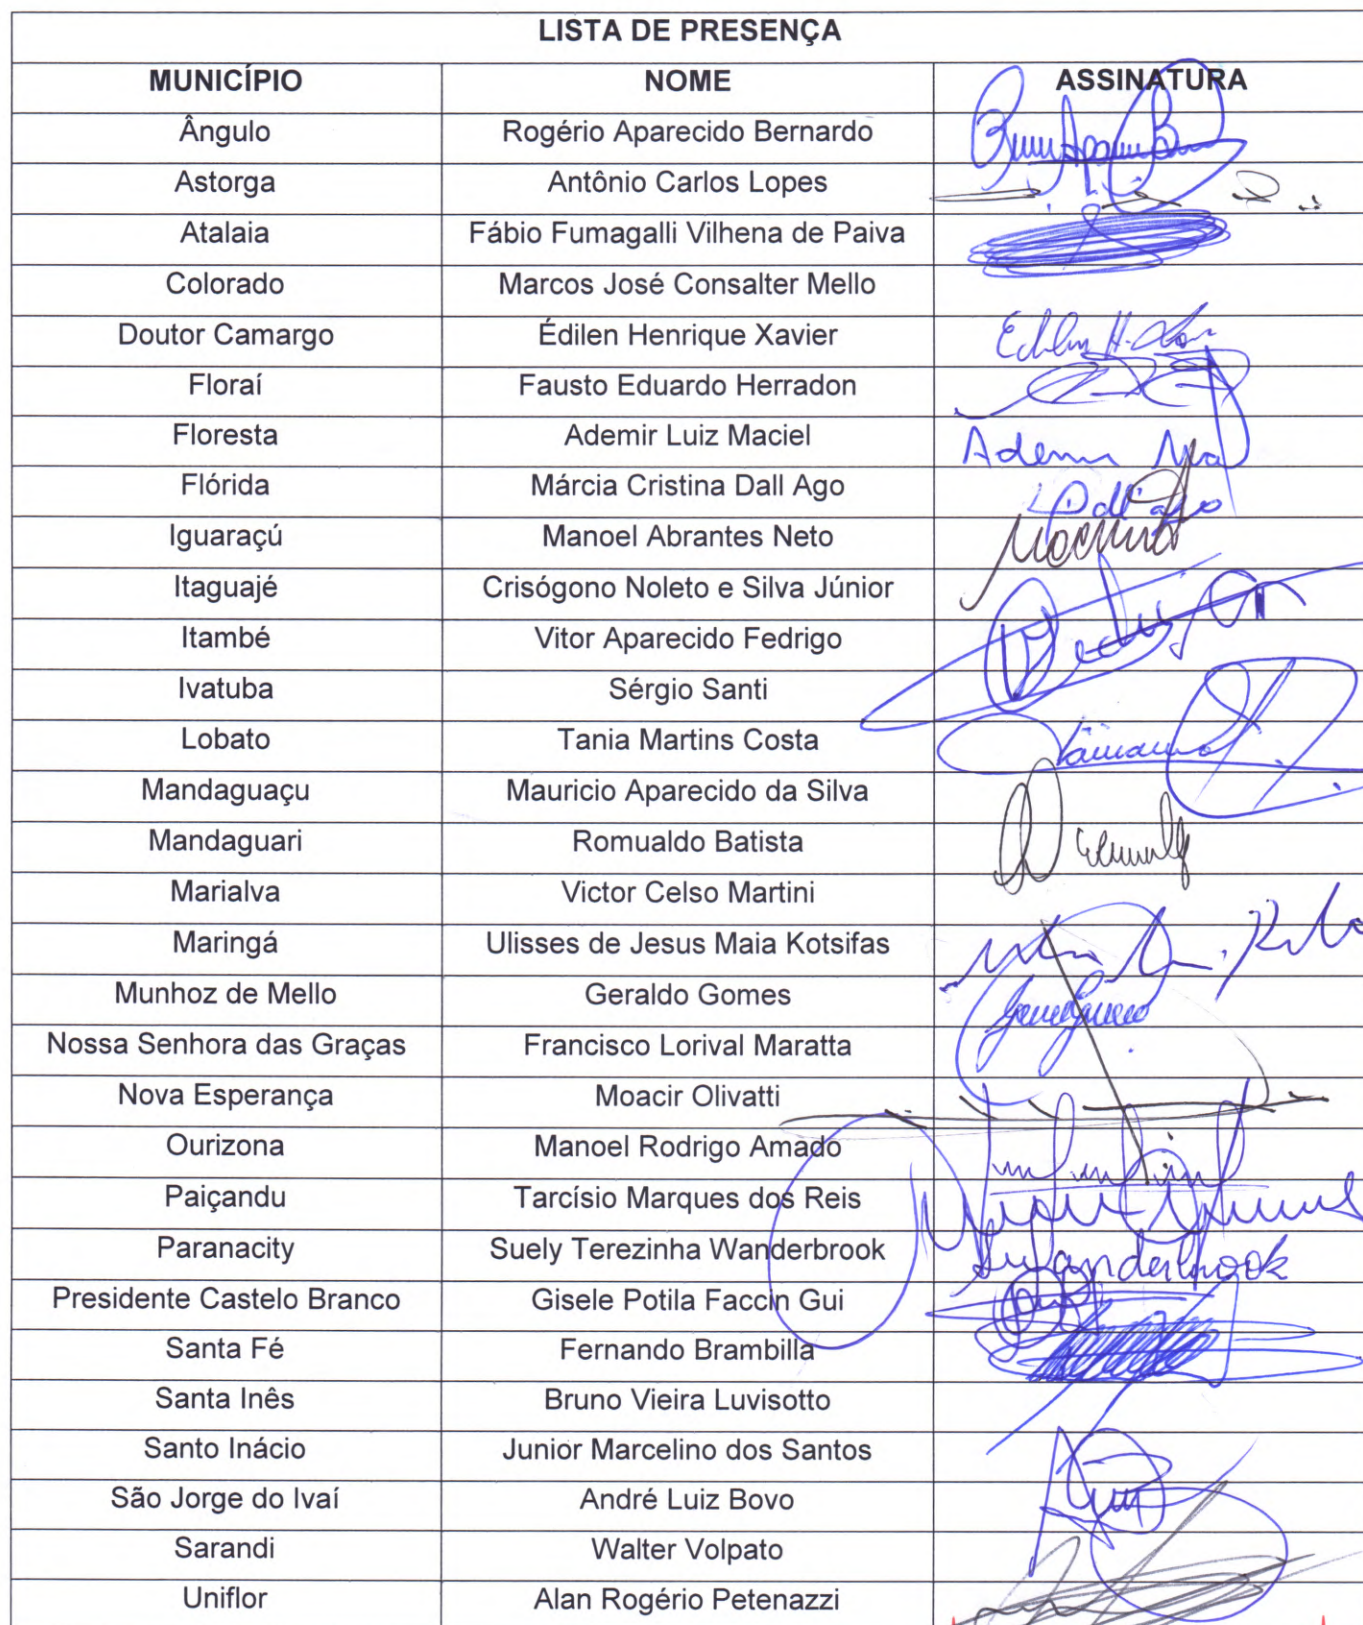 LISTA DE PRESENÇA
MUNICÍPIO NOME ASSINATURA
Ângulo Rogério Aparecido Bernardo
Astorga Antônio Carlos Lopes
Atalaia Fábio Fumagalli Vilhena de Paiva
Colorado Marcos José Consalter Mello
Doutor Camargo Édilen Henrique Xavier
Floraí Fausto Eduardo Herradon
Floresta Ademir Luiz Maciel
Flórida Márcia Cristina Dall Ago
Iguaraçú Manoel Abrantes Neto
Itaguajé Crisógono Noleto e Silva Júnior
Itambé Vitor Aparecido Fedrigo
Ivatuba Sérgio Santi
Lobato Tania Martins Costa
Mandaguaçu Mauricio Aparecido da Silva
Mandaguari Romualdo Batista
Marialva Victor Celso Martini
Maringá Ulisses de Jesus Maia Kotsifas
Munhoz de Mello Geraldo Gomes
Nossa Senhora das Graças Francisco Lorival Maratta
Nova Esperança Moacir Olivatti
Ourizona Manoel Rodrigo Amado
Paiçandu Tarcísio Marques dos Reis
Paranacity Suely Terezinha Wanderbrook
Presidente Castelo Branco Gisele Potila Faccin Gui
Santa Fé Fernando Brambilla
Santa Inês Bruno Vieira Luvisotto
Santo Inácio Junior Marcelino dos Santos
São Jorge do Ivaí André Luiz Bovo
Sarandi Walter Volpato
Uniflor Alan Rogério Petenazzi